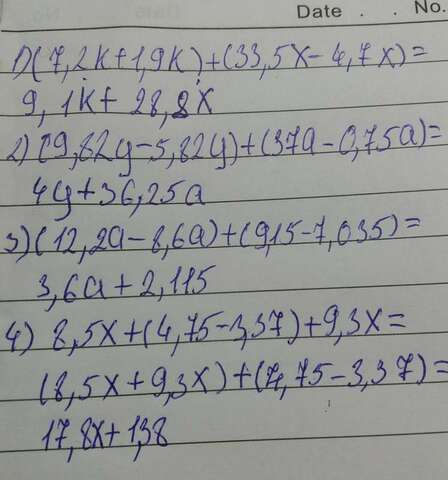 Date . . No.
1) (7,2k+1,9k)+(33,5x-4,7x)=
9,1k+28,8x
2) (9,82y-5,82y)+(37a-0,75a)=
4y+36,25a
3) (12,2a-8,6a)+(9,15-7,035)=
3,6a+2,115
4) 8,5x+(4,75-3,37)+9,3x=
(8,5x+9,3x)+(4,75-3,37)=
17,8x+1,38